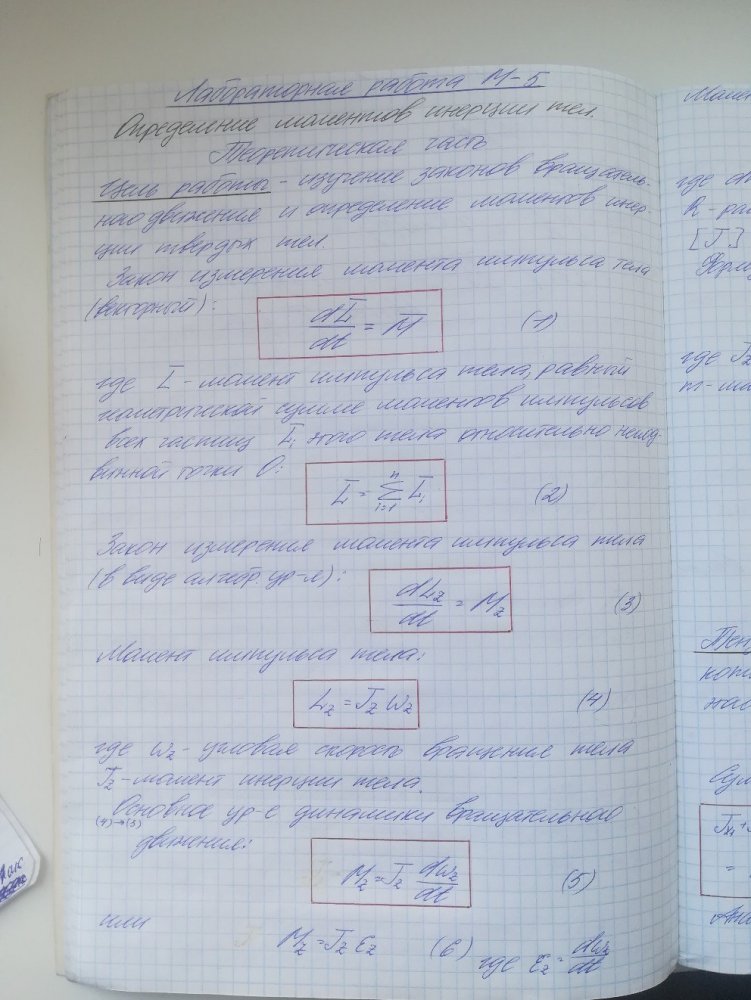 Лабораторная работа М-5
Определение моментов инерции тел.
Теоретическая часть
Цель работы - изучение законов вращатель-
ного движения и определение моментов инер-
ции твердых тел.
Закон измерения момента импульса тела
(векторный):
dL̅/dt = M̅ (1)
где L̅ - момент импульса тела, равный
геометрической сумме моментов импульсов
всех частиц L̅ᵢ этого тела относительно непод-
вижной точки О:
L̅ = ∑ⁿᵢ₌₁ L̅ᵢ (2)
Закон измерения момента импульса тела
(в виде алгебр. ур-я):
dL_z/dt = M_z (3)
Момент импульса тела:
L_z = J_z ω_z (4)
где ω_z - угловая скорость вращение тела
J_z - момент инерции тела.
Основное ур-е динамики вращательного
(4)→(3)
движения:
M_z = J_z dω_z/dt (5)
или
M_z = J_z ε_z (6) где ε_z = dω_z/dt
где
R - ра
[J]
Форм
где J_z
m - ма
коп
нас
Сум
J_x1 +
=